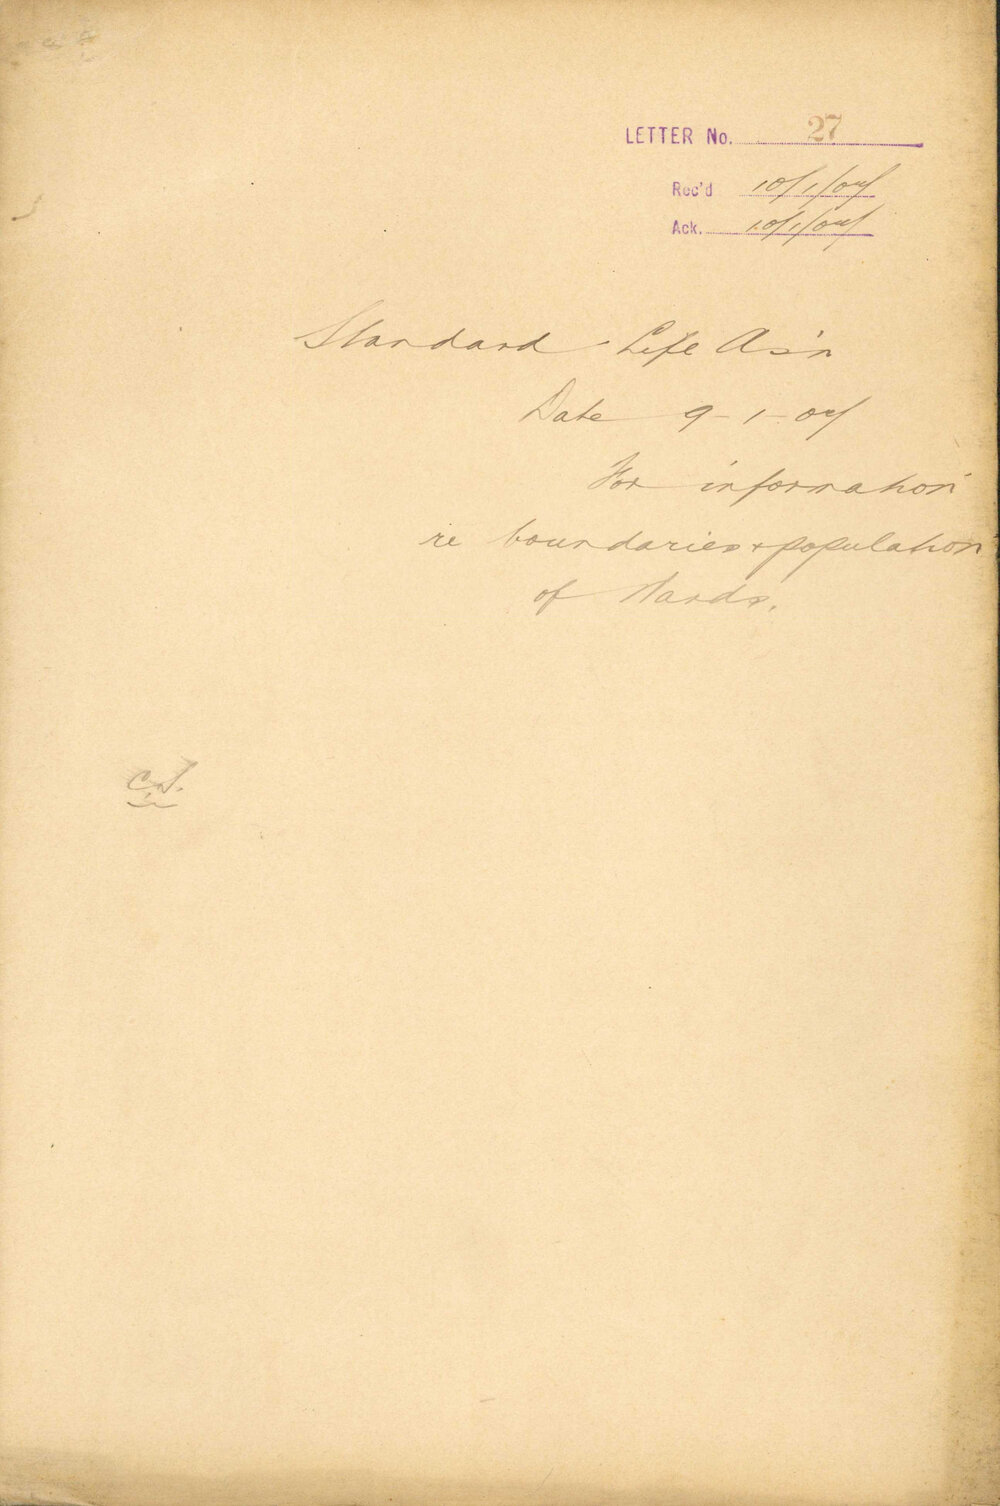 LETTER No. 27
Rec'd 10/1/04
Ack. 10/1/04
Standard Life Ass'n
Date 9-1-04
For information
re boundaries & population
of Wards.